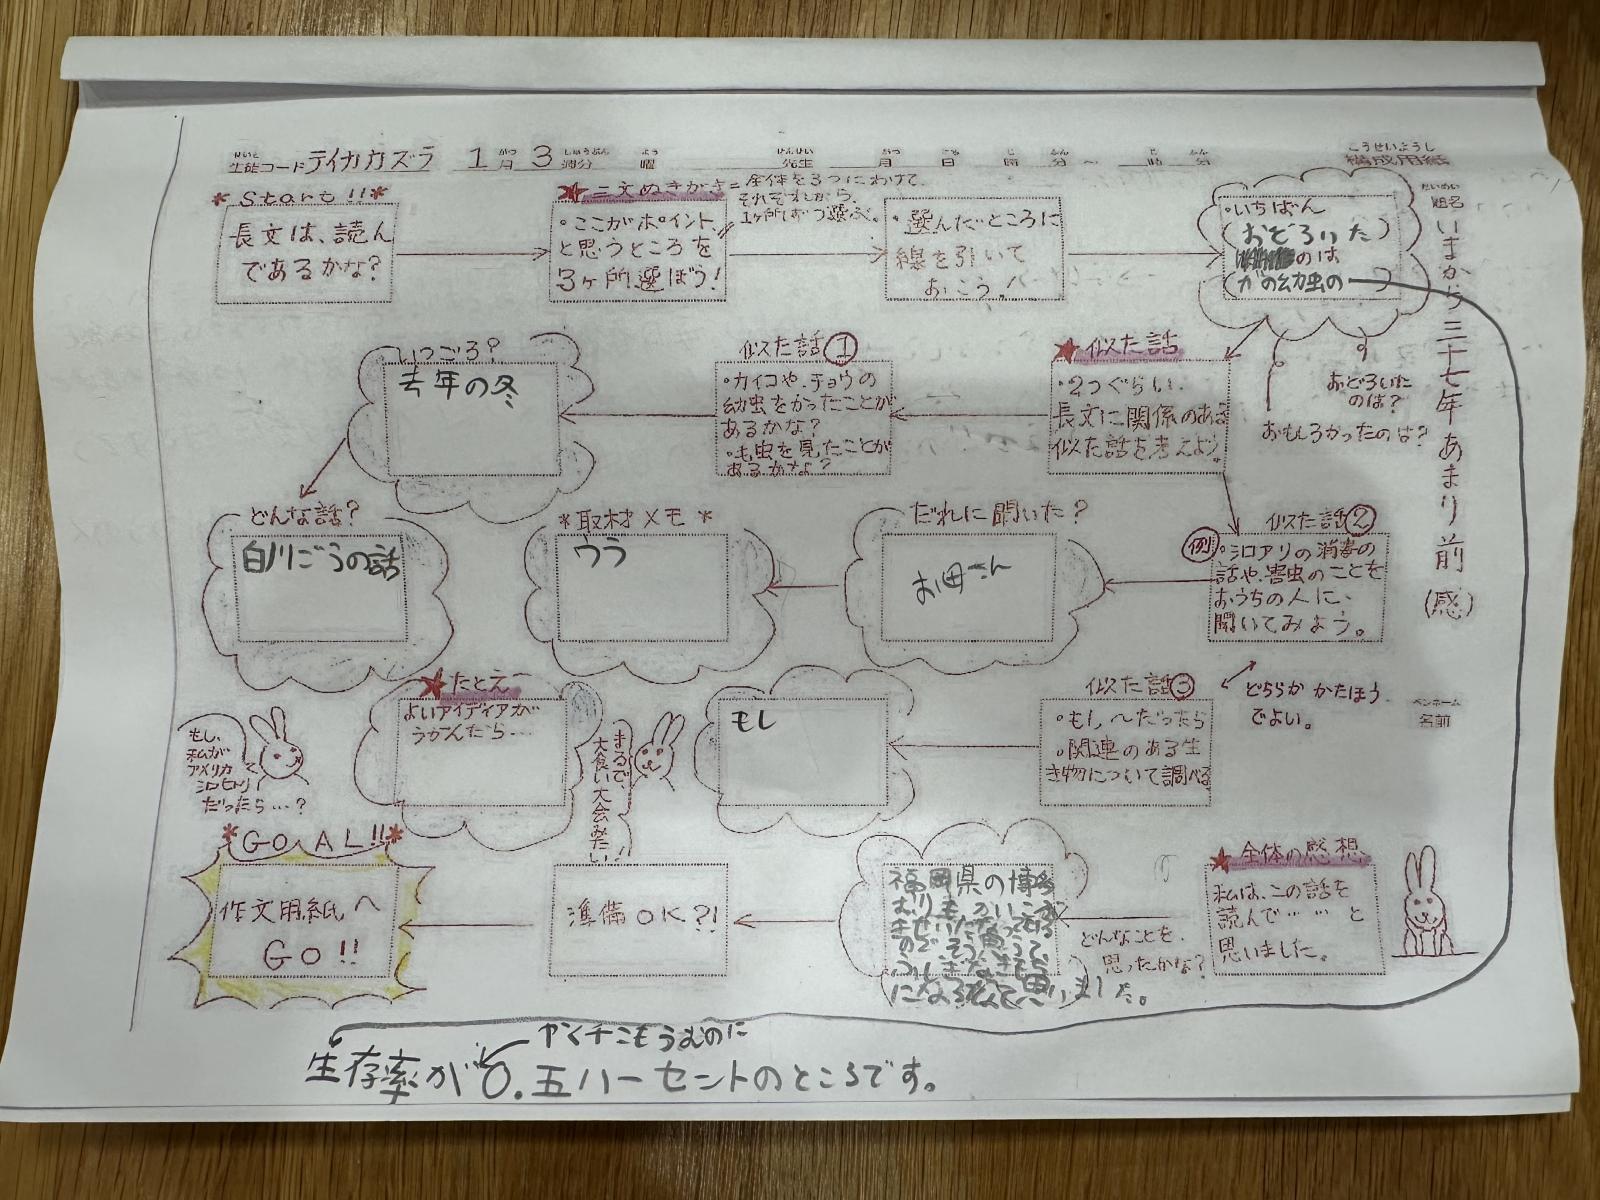 生徒コード テイカカズラ 1月3週分 曜 先生 月 日 時 分 〜 時 分
こうせいようし
構成用紙
だいめい
題名
いまから三十七年あまり前(感)
ペンネーム
名前
*Start!!*
長文は、読ん
であるかな?
★三文ぬきがき=全体を3つにわけて、
それぞれから、
1ヶ所ずつ選ぶ。
・ここがポイント!
と思うところを
3ヶ所選ぼう!
・選んだところに
線を引いて
おこう。
・いちばん
(おどろいた)
のは
(ガの幼虫の
おどろいた
のは?
おもしろかったのは?
★似た話
・2つぐらい、
長文に関係のある
似た話を考えよう。
似た話①
・カイコや、チョウの
幼虫をかったことが
あるかな?
・毛虫を見たことが
あるかな?
いつごろ?
去年の冬
どんな話?
白川ごうの話
似た話②
例
・シロアリの消毒の
話や、害虫のことを
おうちの人に、
聞いてみよう。
だれに聞いた?
お母さん
*取材メモ*
ウラ
どちらか かたほう
でよい。
似た話③
・もし〜だったら
・関連のある生
き物について調べる
もし
まるで、
大食い大会みたい!
★たとえ
よいアイディアが
うかんだら…
もし、
私が
アメリカ
シロヒトリ
だったら…?
★全体の感想
私は、この話を
読んで……と
思いました。
どんなことを、
思ったかな?
福岡県の博多
になるなんて思いました。
準備OK?!
*GOAL!!*
作文用紙へ
GO!!
ヤママチこもうむのに
生存率が0.五パーセントのところです。